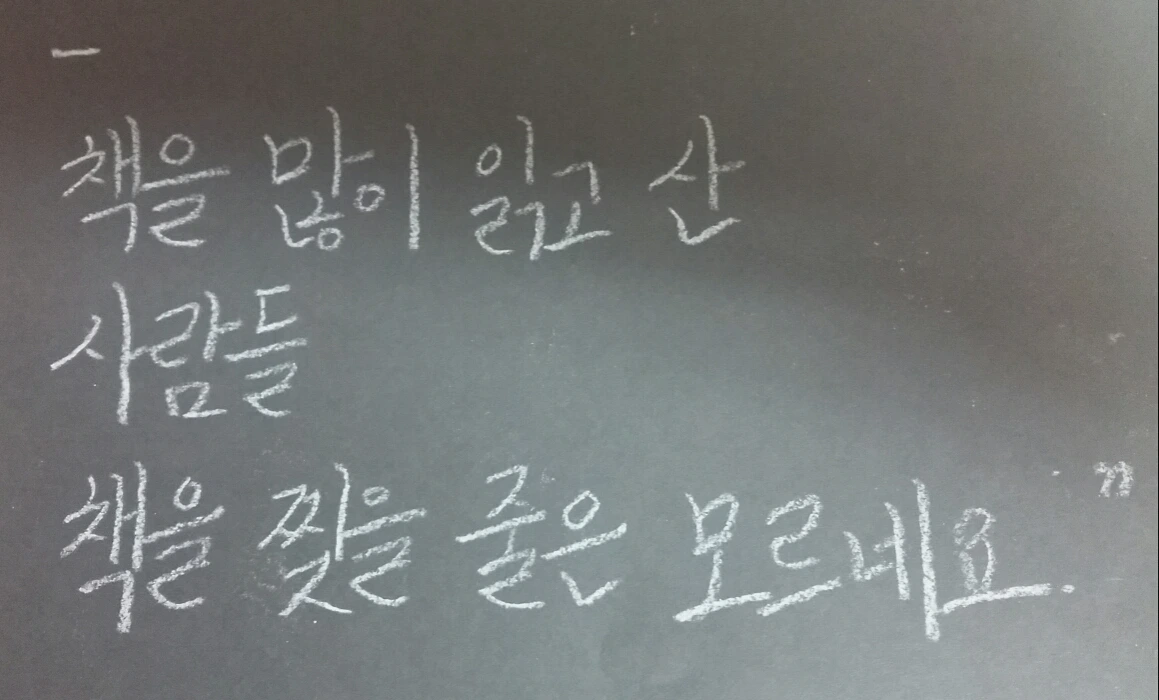 -
책을 많이 읽고 산
사람들
책을 찢을 줄은 모르네요."